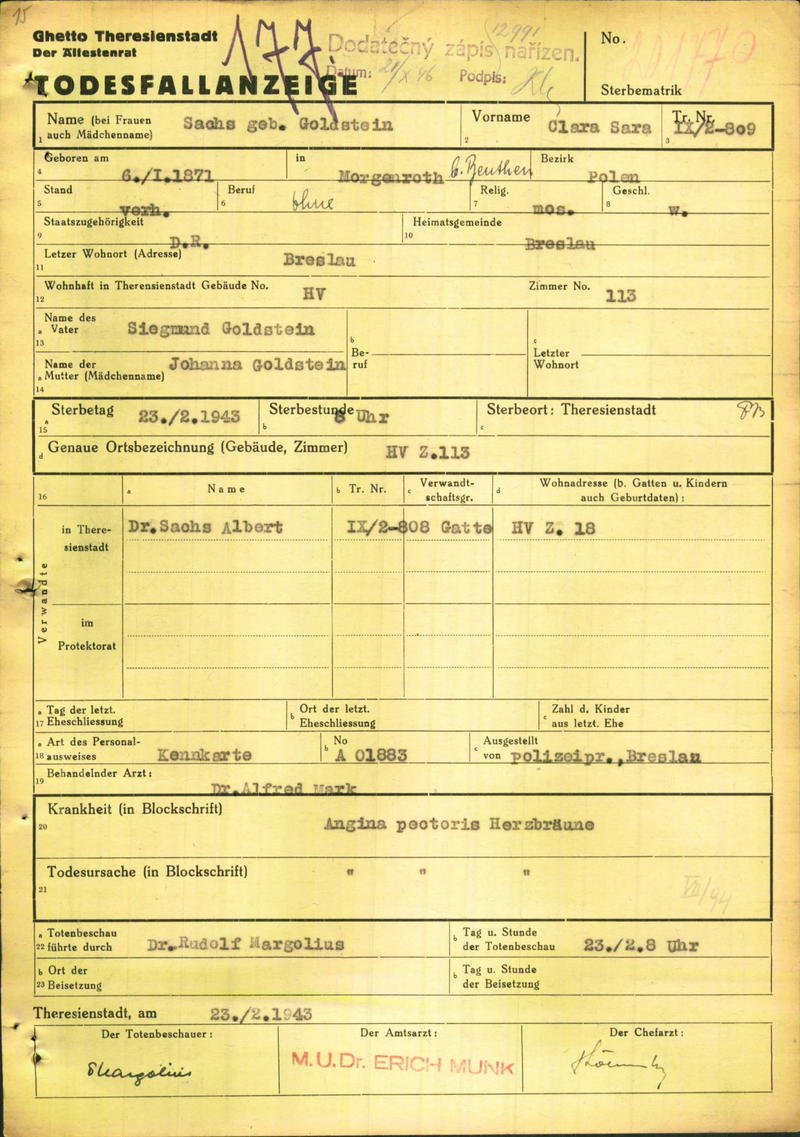 15
Ghetto Theresienstadt
Der Ältestenrat
177
12991
Dodatečný zápis nařízen.
Datum: Podpis:
No.
TODESFALLANZEIGE
Sterbematrik
Name (bei Frauen auch Mädchenname) Sachs geb. Goldstein Vorname Clara Sara Tr. Nr. IX/2-809
1 2 3
Geboren am 6./I.1871 in Morgenroth b. Beuthen Bezirk Polen
4
Stand verh. Beruf ohne Relig. mos. Geschl. w.
5 6 7 8
Staatszugehörigkeit D.R. Heimatsgemeinde Breslau
9 10
Letzer Wohnort (Adresse) Breslau
11
Wohnhaft in Therensienstadt Gebäude No. HV Zimmer No. 113
12
Name des
a Vater Siegmund Goldstein
13
b Beruf
c Letzter Wohnort
Name der Johanna Goldstein
a Mutter (Mädchenname)
14
Sterbetag 23./2.1943 Sterbestunde 8 Uhr Sterbeort: Theresienstadt
a 15 b c
d Genaue Ortsbezeichnung (Gebäude, Zimmer) HV Z.113
16 a Name b Tr. Nr. c Verwandtschaftsgr. d Wohnadresse (b. Gatten u. Kindern auch Geburtdaten):
Verwandte
in Theresienstadt Dr.Sachs Albert IX/2-808 Gatte HV Z. 18
im Protektorat
a Tag der letzt. b Ort der letzt. c Zahl d. Kinder
17 Eheschliessung Eheschliessung aus letzt. Ehe
a Art des Personal- b No c Ausgestellt
18 ausweises Kennkarte A 01883 von polizeipr.,Breslau
19 Behandelnder Arzt: Dr.Alfred Mark
Krankheit (in Blockschrift)
20 Angina pectoris Herzbräune
Todesursache (in Blockschrift) " " "
21
VII/94
a Totenbeschau b Tag u. Stunde
22 führte durch Dr.Rudolf Margolius der Totenbeschau 23./2.8 Uhr
b Ort der b Tag u. Stunde
23 Beisetzung der Beisetzung
Theresienstadt, am 23./2.1943
Der Totenbeschauer: Der Amtsarzt: Der Chefarzt:
Margolius M.U.Dr. ERICH MUNK